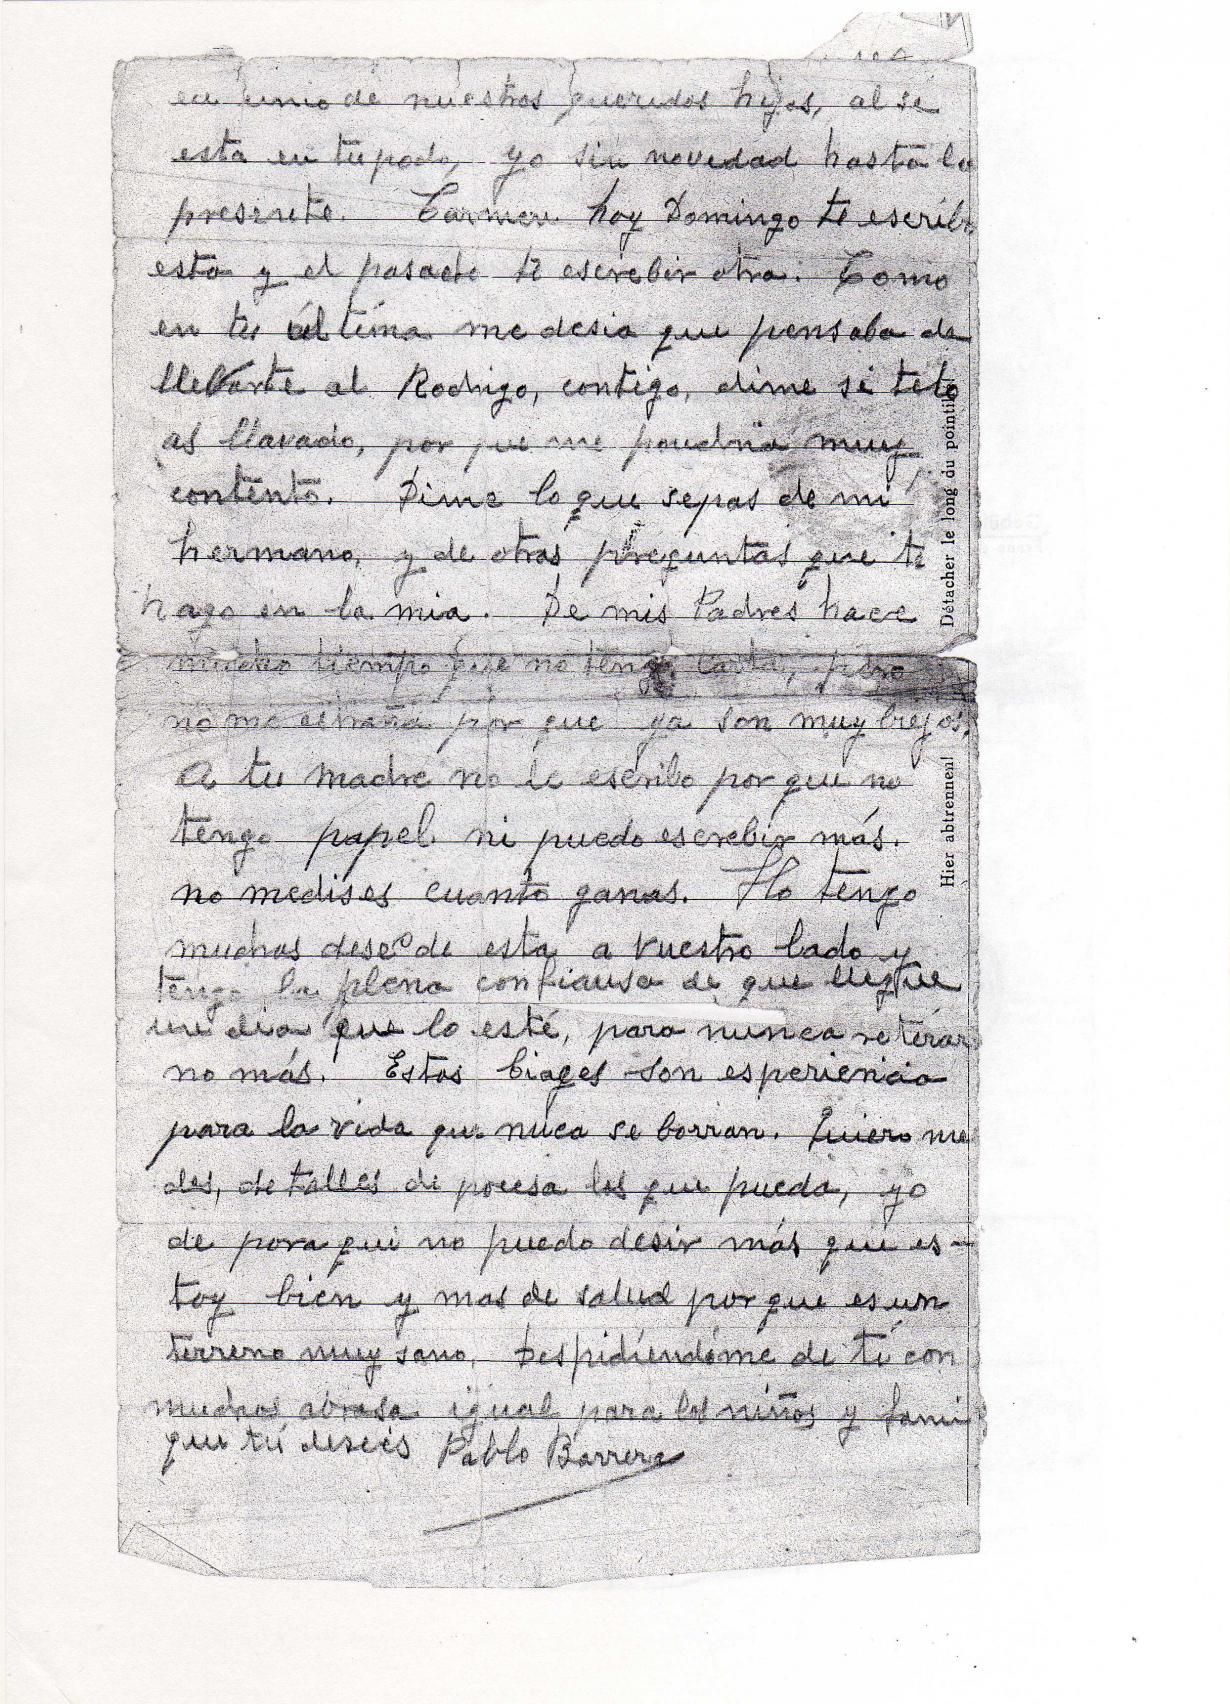 en unio de nuestros queridos hijos, al si
esta en tu poda, yo sin novedad hasta la
presente. Carmen hoy Domingo te escribo
esta y el pasado te escrebir otra. Como
en tu última me desia que pensaba de
llevarte al Rodrigo, contigo, dime si telo
as llavado, por que me pondria muy
contento. Dime lo que sepas de mi
hermano, y de otras preguntas que te
hago en la mia. De mis Padres hace
mucho tiempo que no tengo carta, pero
no me estraña por que ya son muy biejos,
A tu madre no le escribo por que no
tengo papel ni puedo escrebir más.
no medises cuanto ganas. Yo tengo
muchos deseo de esta a vuestro lado y
tengo la plena confiansa de que llegue
un dia que lo esté, para nunca reterar
no más. Estos biages son esperiencia
para la vida que nuca se borran. Quiero me
des, detalles de por esa los que pueda, yo
de pora qui no puedo desir más que es-
toy bien y mas de salud por que es un
terreno muy sano, Despidíendóme de tú con
muchos abrasa igual para los niños y fami
que tú desees Pablo Barrera
Détacher le long du pointillé
Hier abtrennen!